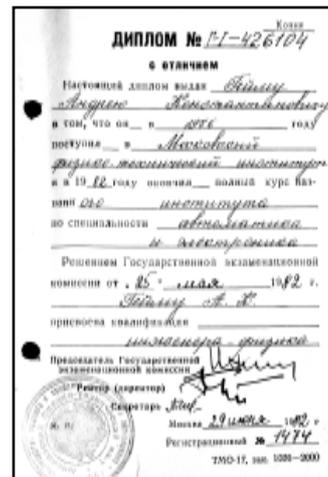 Копия
ДИПЛОМ № Г-I-426104
с отличием
Настоящий диплом выдан Гейму
Андрею Константиновичу
в том, что он в 1976 году
поступил в Московский
физико-технический институт
и в 1982 году окончил полный курс наз-
ванного института
по специальности автоматика
и электроника
Решением Государственной экзаменационной
комиссии от 25 мая 1982 г.
Гейму А. К.
присвоена квалификация
инженера-физика
Председатель Государственной
экзаменационной комиссии
Ректор (директор)
Секретарь
М. П.
Москва 29 июня 1982 г.
Регистрационный № 1474
ТМО-17, зак. 1020—2000